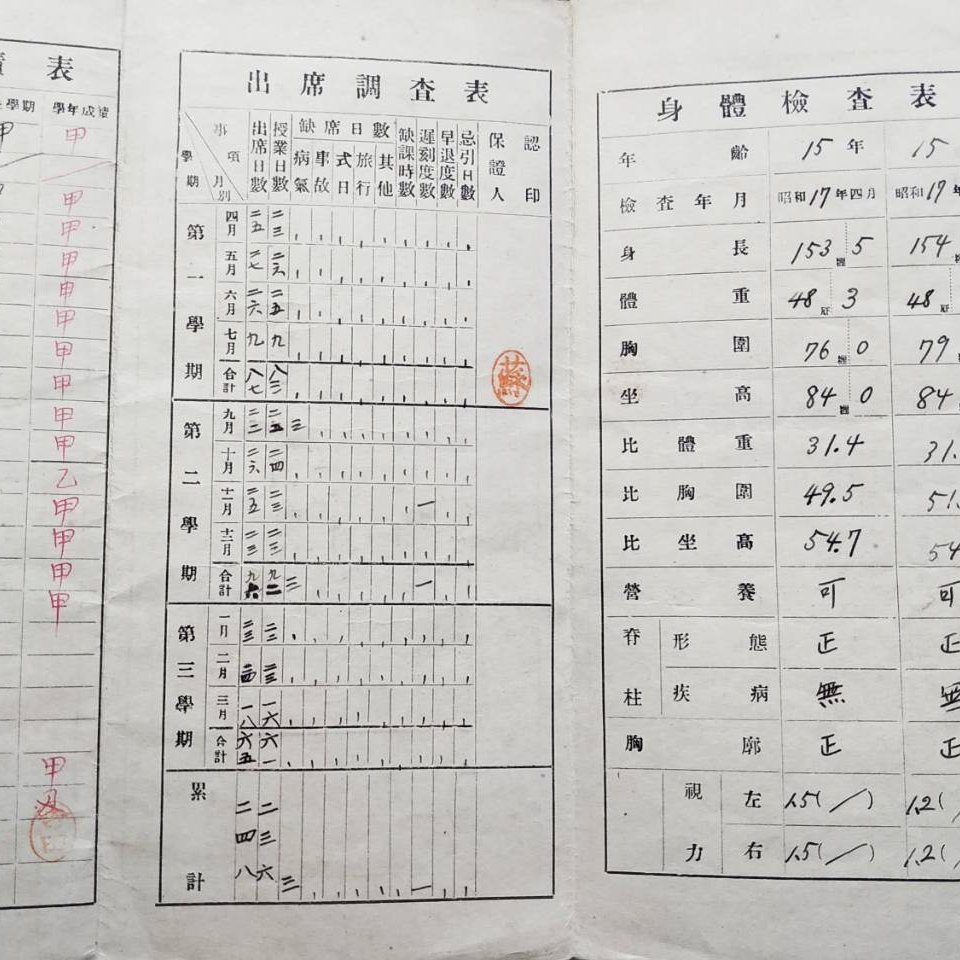 表
學期 學年成績
甲 甲
甲
甲
甲
甲
甲
甲
甲
甲
甲
乙
甲
甲
甲
甲
甲
出席調查表
事項 月別 學期
出席日數 授業日數 缺席日數 病氣 事故 式日 旅行 其他 缺課時數 遲刻度數 早退度數 忌引日數 保證人 認印
第一學期
四月 二五 二三
五月 二七 二六
六月 二六 二五
七月 九 九
合計 八七 八三
蘇
第二學期
九月 二二 二五 三
十月 二六 二四
十一月 二五 二三 一
十二月 二三 二三
合計 九六 九二 三 一
第三學期
一月 二三 二二
二月 二四 二三
三月 一八 一六
合計 六五 六一
累計 二四八 二三六 三 一
身體檢查表
年齡 15年 15
檢查年月 昭和17年四月 昭和17年
身長 153 5 154
體重 48 3 48
胸圍 76 0 79
坐高 84 0 84
比體重 31.4 31.
比胸圍 49.5 51.
比坐高 54.7 54
營養 可 可
脊柱 形態 正 正
疾病 無 無
胸廓 正 正
視力 左 1.5( ／ ) 1.2(
右 1.5( ／ ) 1.2(